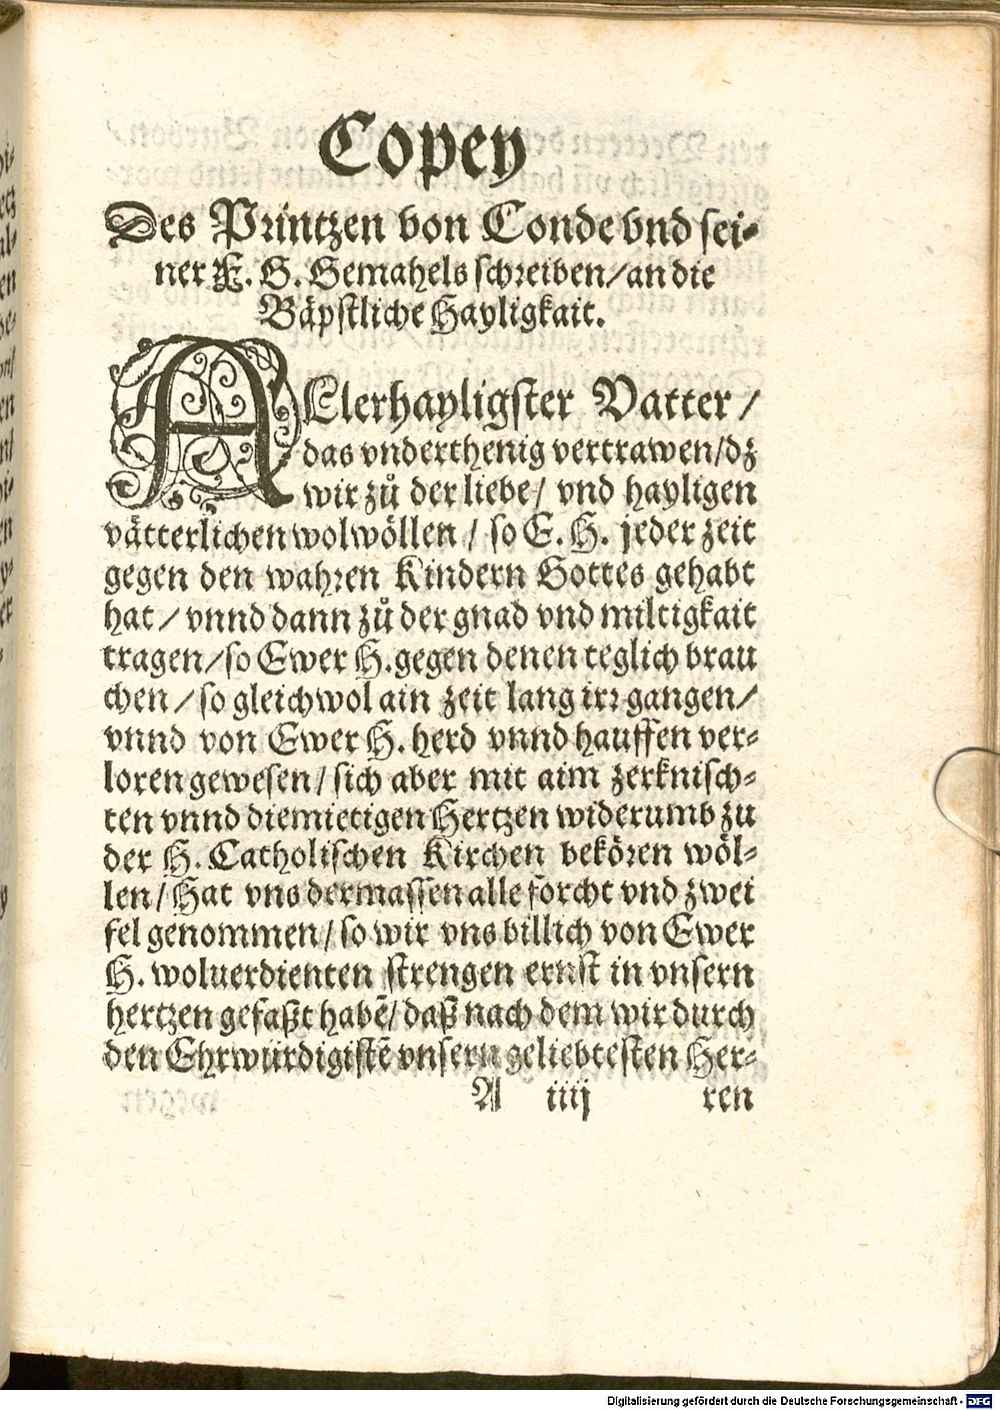 Copey
Des Printzen von Conde vnd sei-
ner F. G. Gemahels schreiben/ an die
Bäpstliche Hayligkait.
ALlerhayligster Vatter /
das vnderthenig vertrawen/ dz
wir zů der liebe/ vnd hayligen
vätterlichen wolwöllen / so E. H. jeder zeit
gegen den wahren Kindern Gottes gehabt
hat / vnnd dann zů der gnad vnd miltigkait
tragen/ so Ewer H. gegen denen teglich brau
chen / so gleichwol ain zeit lang irr gangen/
vnnd von Ewer H. herd vnnd hauffen ver-
loren gewesen/ sich aber mit aim zerknisch-
ten vnnd diemietigen Hertzen widerumb zu
der H. Catholischen Kirchen bekören wöl-
len/ Hat vns dermassen alle forcht vnd zwei
fel genommen/ so wir vns billich von Ewer
H. woluerdienten strengen ernst in vnsern
hertzen gefaßt habē/ daß nach dem wir durch
den Ehrwürdigistē vnsern geliebtesten Her-
A iiij ren
Digitalisierung gefördert durch die Deutsche Forschungsgemeinschaft - DFG